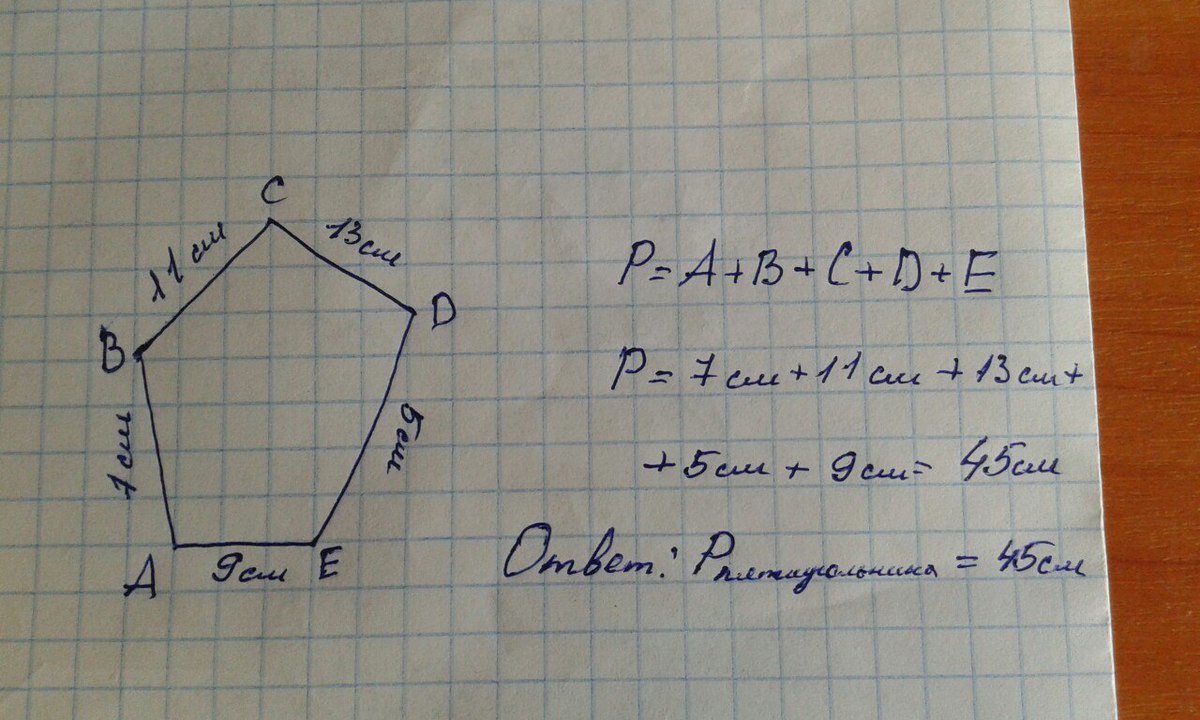 C
11 см
13 см
B
D
7 см
5 см
A
9 см
E
P = A + B + C + D + E
P = 7 см + 11 см + 13 см +
+ 5 см + 9 см = 45 см
Ответ: Pпятиугольника = 45 см